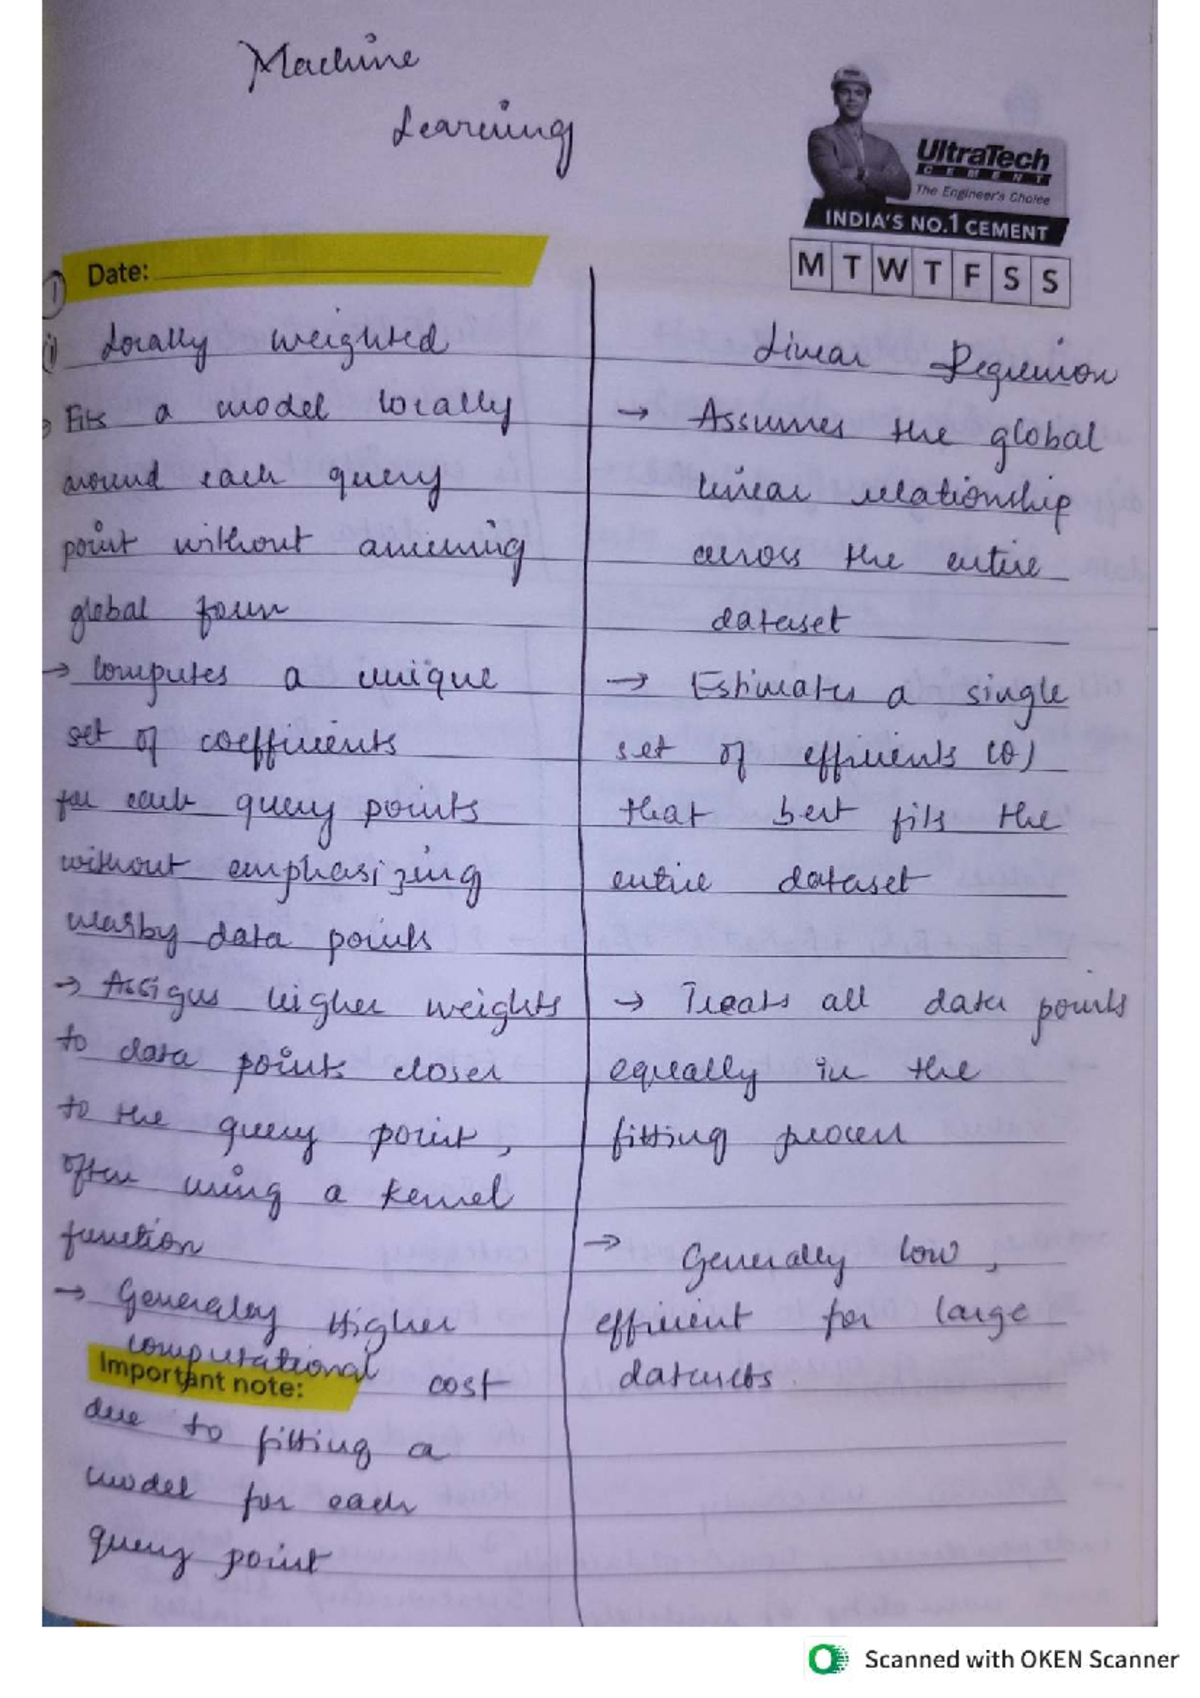 Machine
Learning
UltraTech
CEMENT
The Engineer's Choice
INDIA'S NO.1 CEMENT
M T W T F S S
Date:
1
i) Locally weighted
→ Fits a model locally
around each query
point without assuming
global form
→ Computes a unique
set of coefficients
for each query points
without emphasizing
nearby data points
→ Assigns higher weights
to data points closer
to the query point,
often using a kernel
function
→ Generaley Higher
computational
Important note:
cost
due to fitting a
model for each
query point
Linear Regression
→ Assumes the global
linear relationship
across the entire
dataset
→ Estimates a single
set of efficients (θ)
that best fits the
entire dataset
→ Treats all data points
equally in the
fitting process
→ Generally low,
efficient for large
datasets.
Scanned with OKEN Scanner